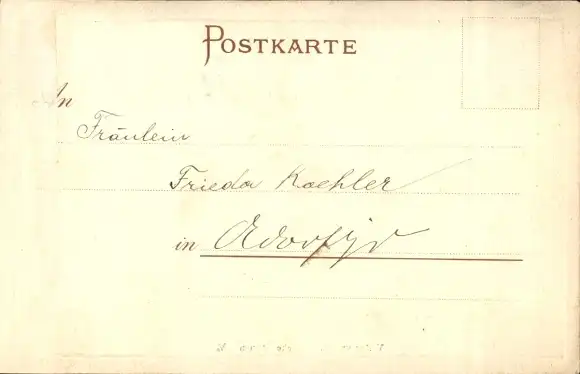 POSTKARTE
An
Fräulein
Frieda Koehler
in Adorf i/V